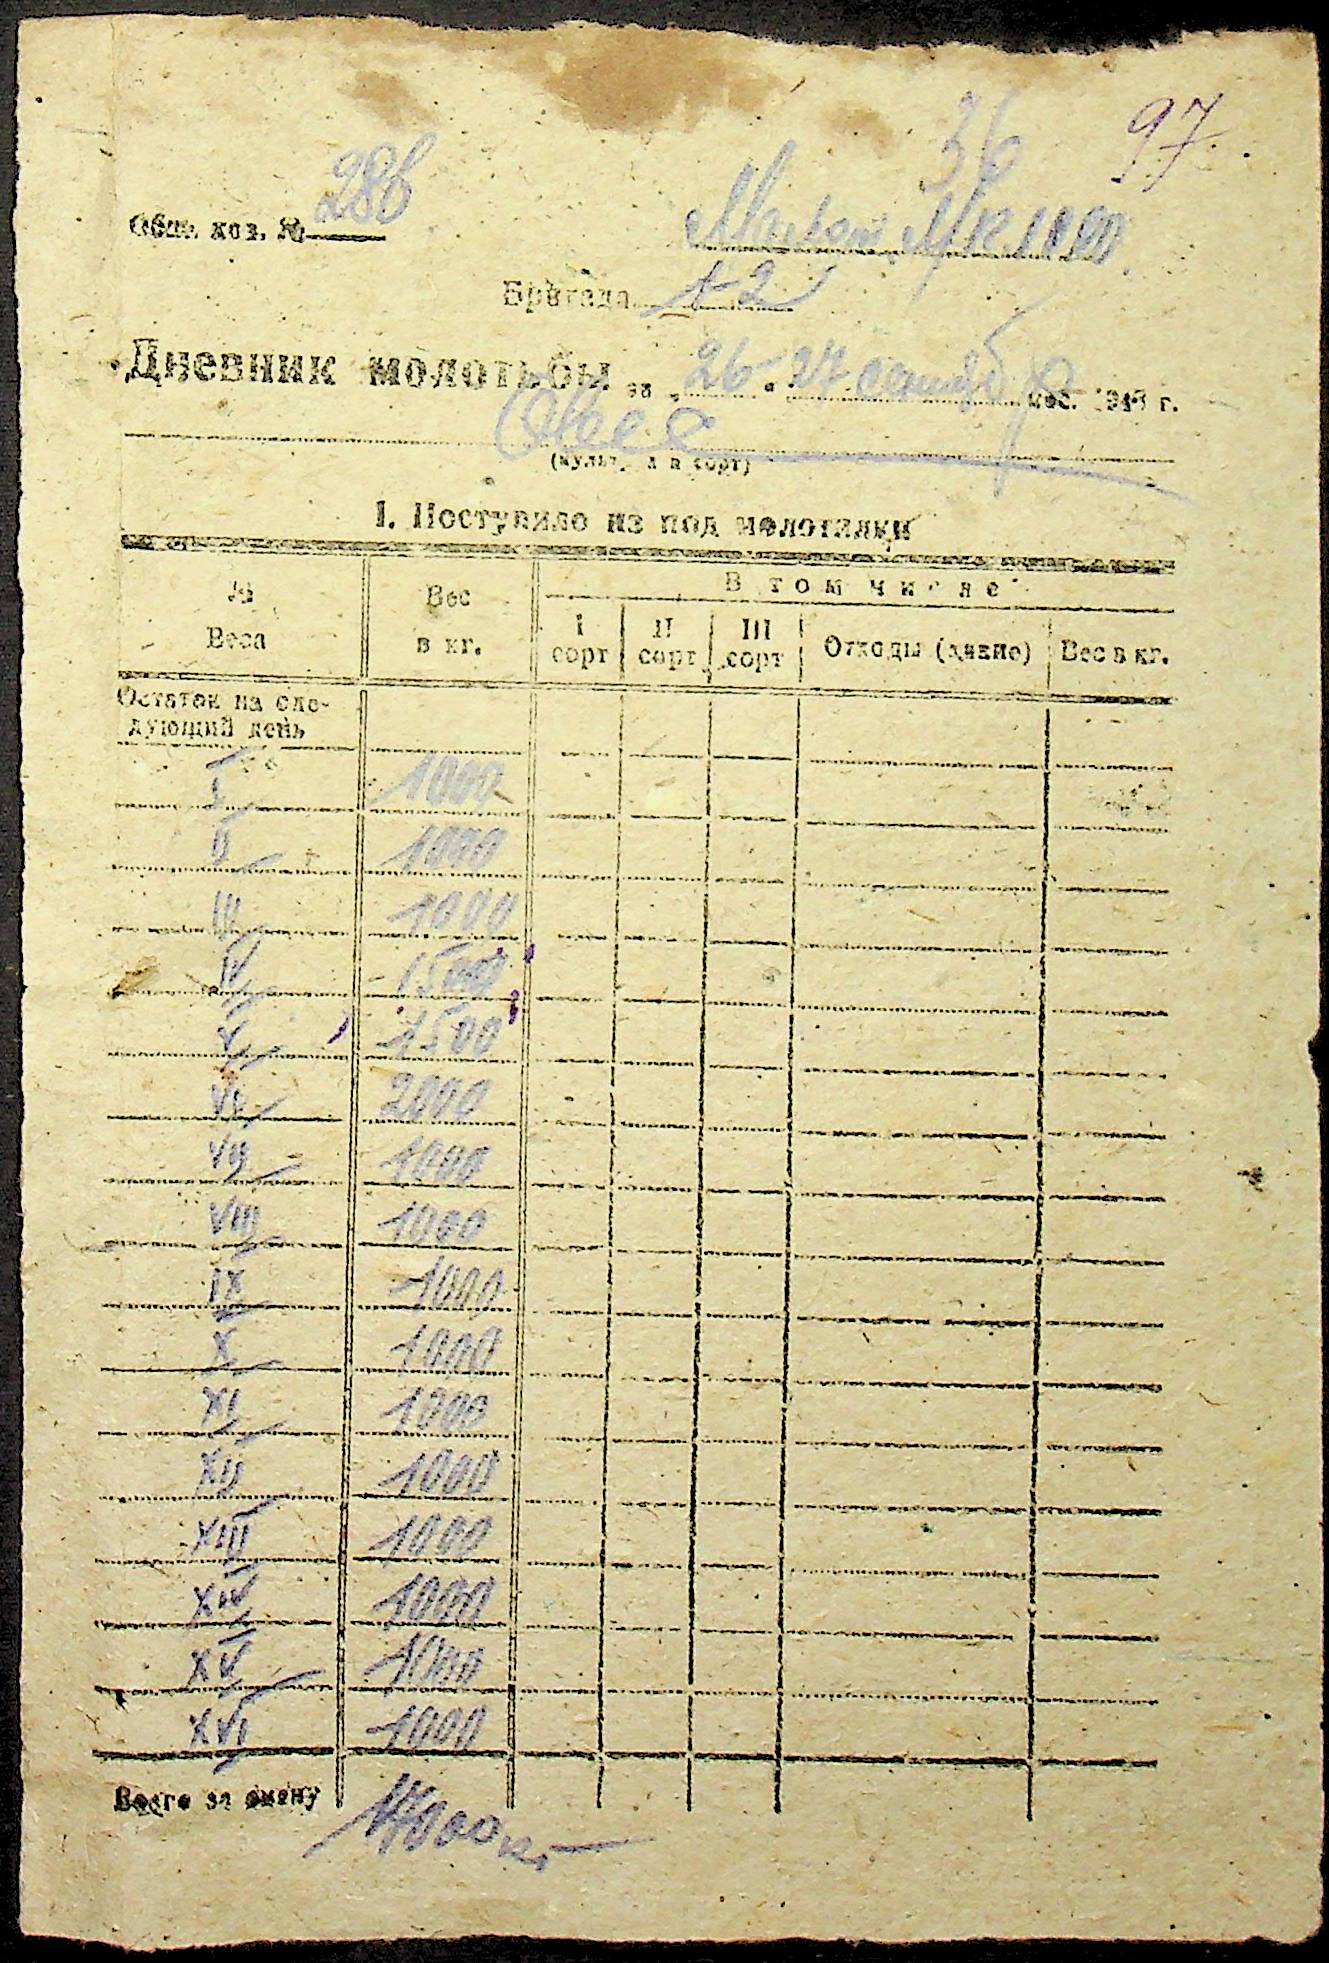 36 97
Общ. хоз. № 28б
Бригада № 2
Дневник молотьбы за „26-27 сентября мес. 194 г.
Овес
(культура и сорт)
I. Поступило из под молотилки
№ Веса Вес в кг. В том числе
I сорт II сорт III сорт Отходы (какие) Вес в кг.
Остаток на сле-
дующий день
I 1000
II 1000
III 1000
IV 1500
V 1500
VI 2000
VII 1000
VIII 1000
IX 1000
X 1000
XI 1000
XII 1000
XIII 1000
XIV 1000
XV 1000
XVI 1000
Всего за смену